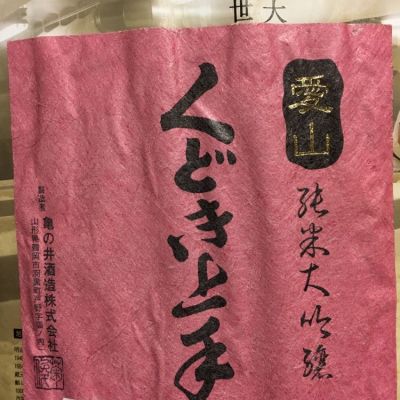 愛山
純米大吟醸
くどき上手
製造者
亀の井酒造株式会社
山形県鶴岡市羽黒町戸野字福ノ内一
世
大